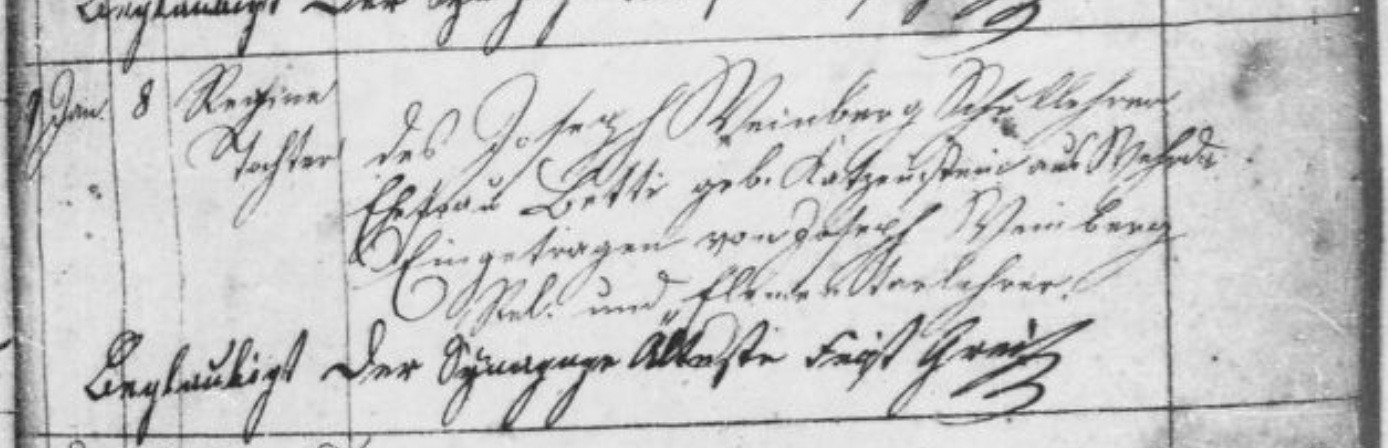 Beglaubigt Der
9 Jan. 8 Regine
Tochter
des Joseph Weinberg Schullehrer
Ehefrau Betti geb. Katzenstein aus Wehrda
Eingetragen von Joseph Weinberg
Rel. und Elementarlehrer.
Beglaubigt Der Synagoge Älteste Feist